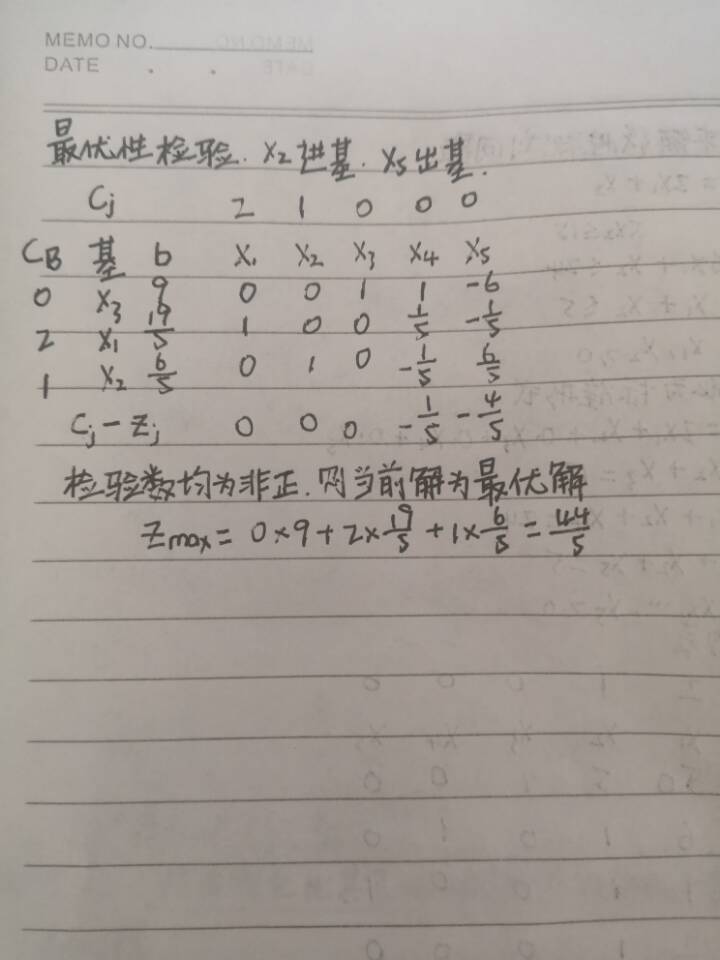 MEMO NO.
DATE . .
最优性检验. x2进基. x5出基.
Cj 2 1 0 0 0
CB 基 b x1 x2 x3 x4 x5
0 x3 9 0 0 1 1 -6
2 x1 19/5 1 0 0 1/5 -1/5
1 x2 6/5 0 1 0 -1/5 6/5
Cj-Zj 0 0 0 -1/5 -4/5
检验数均为非正.则当前解为最优解
Zmax= 0×9+2×19/5+1×6/5=44/5